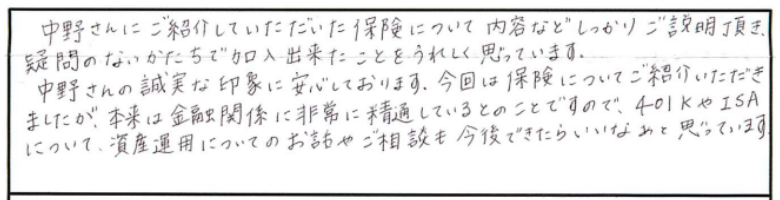 中野さんにご紹介していただいた保険について内容などしっかりご説明頂き、
疑問のないかたちで加入出来たことをうれしく思っています。
中野さんの誠実な印象に安心しております。今回は保険についてご紹介いただき
ましたが、本来は金融関係に非常に精通しているとのことですので、401KやISA
について、資産運用についてのお話やご相談も今後できたらいいなぁと思っています。